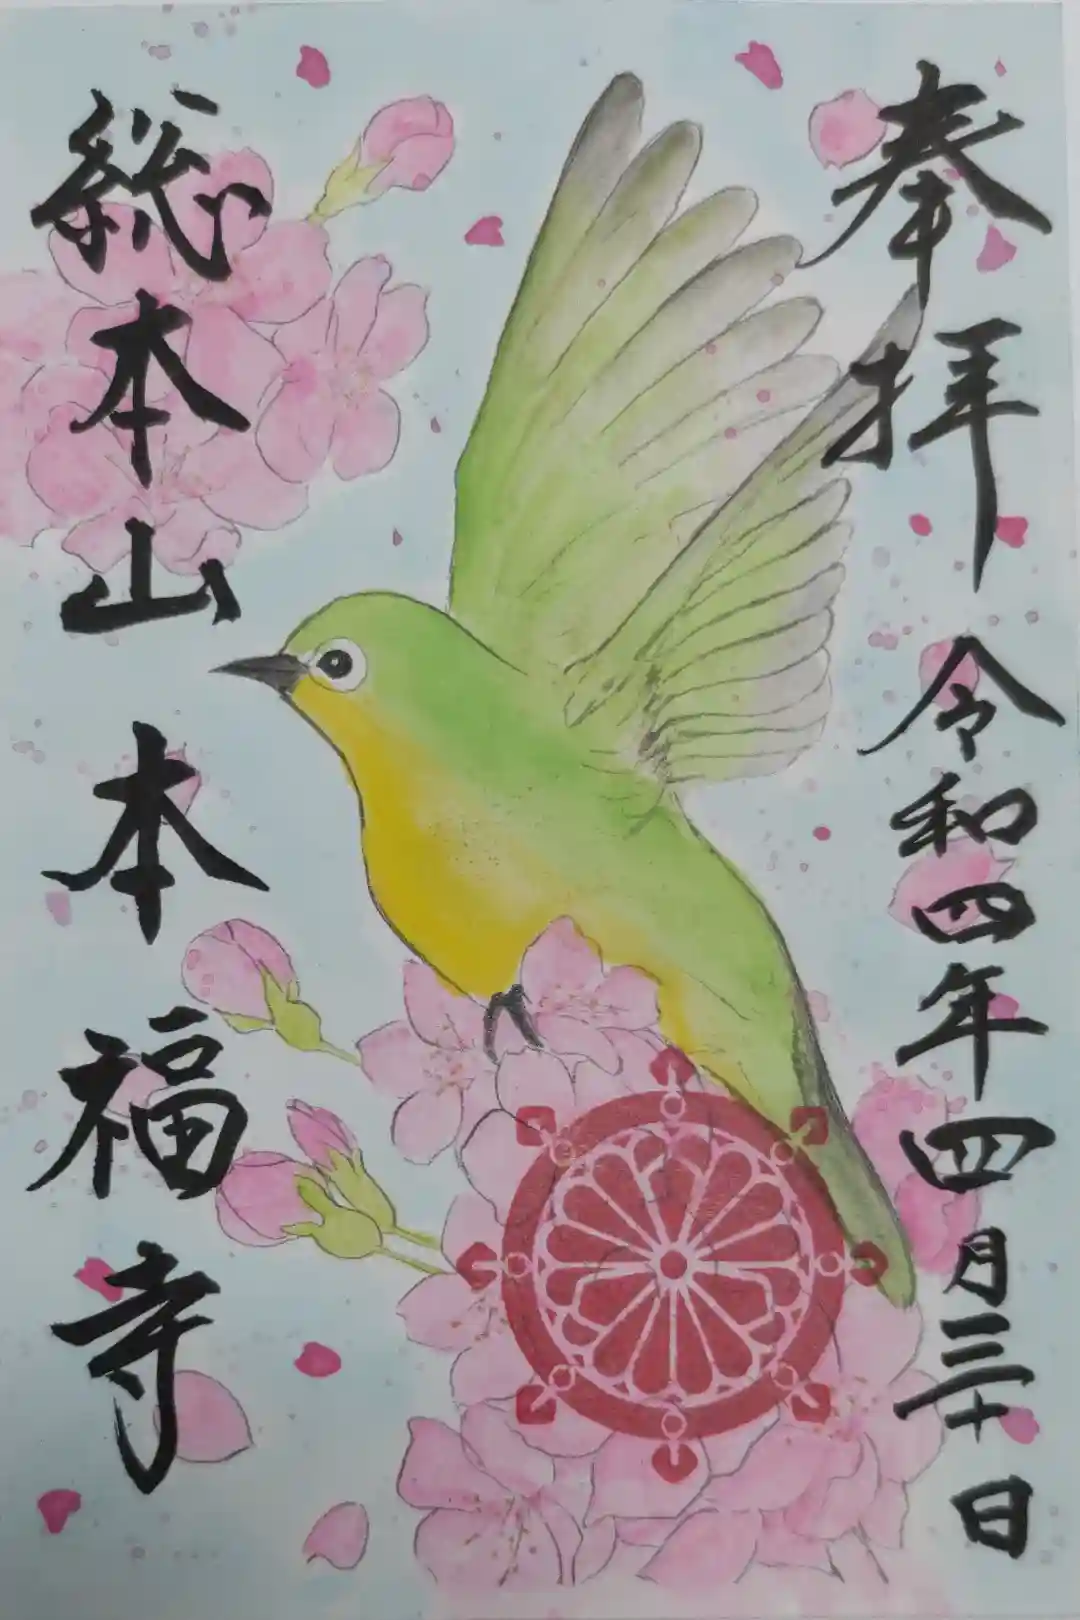 奉拝 令和四年四月三十日
総本山 本福寺